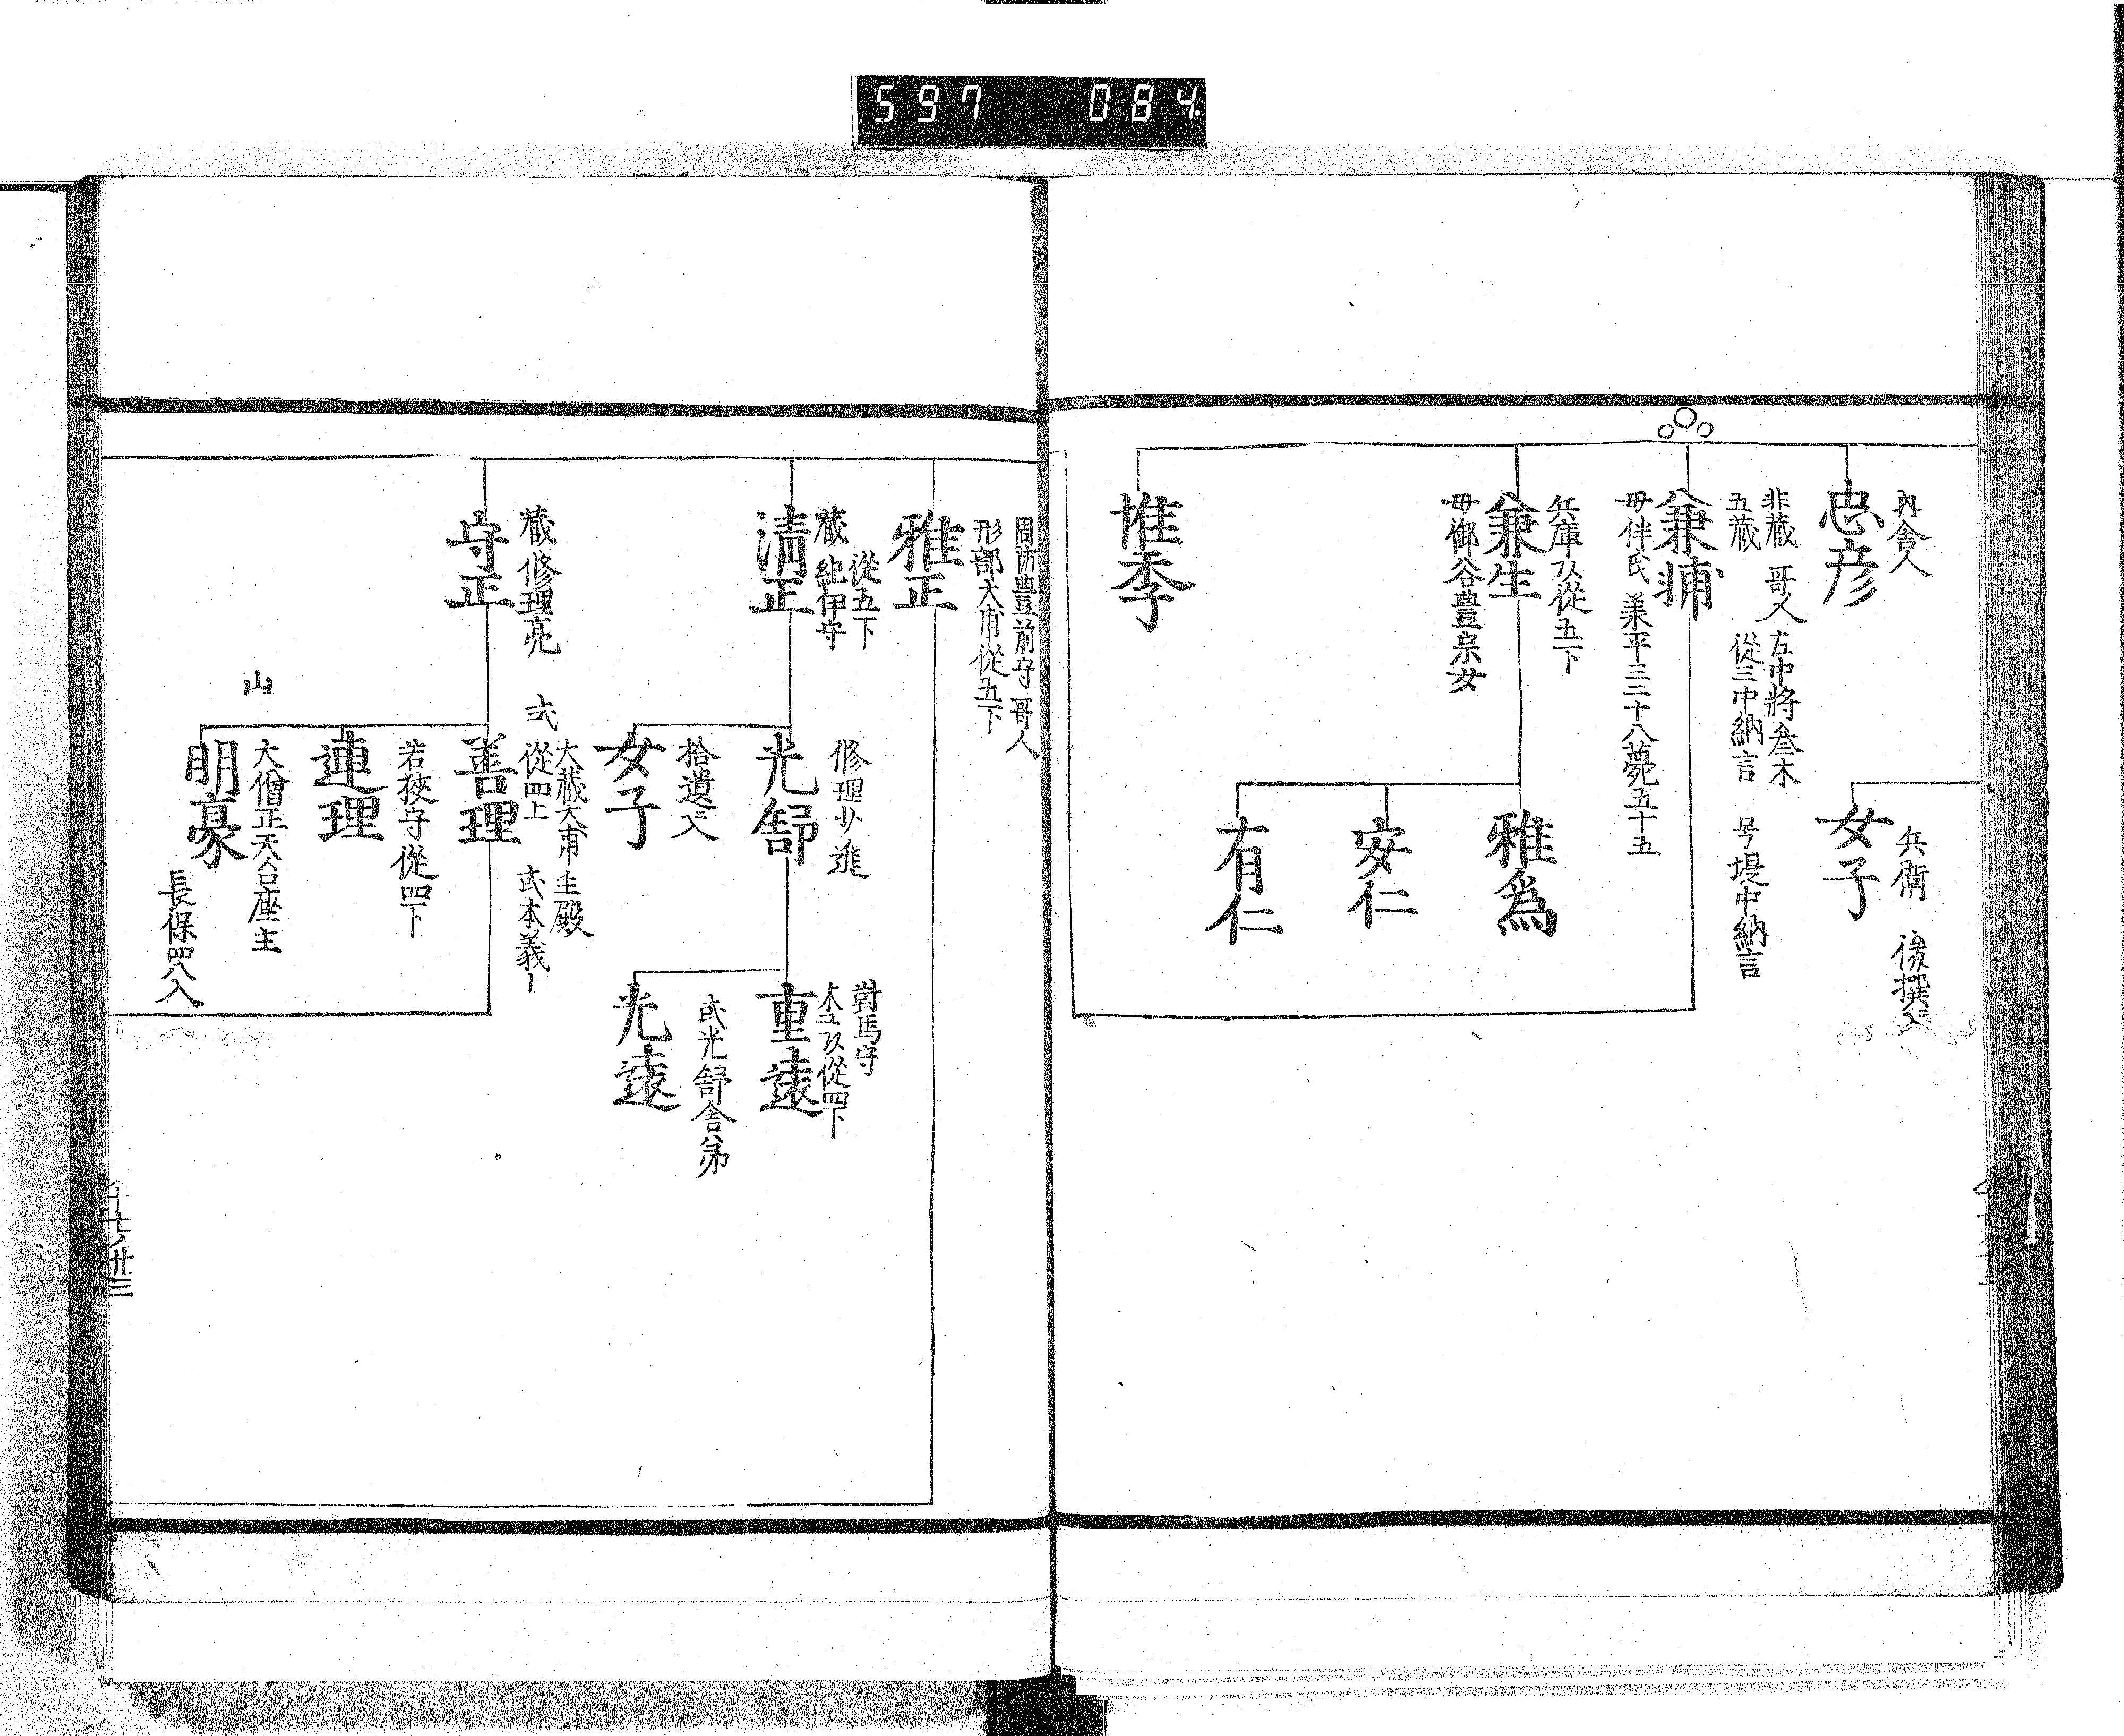 597 084
内舎人
忠彦
兵衛 後撰入
女子
非蔵 哥人 左中将叅木
五蔵 從三中納言 号堤中納言
兼輔
母伴氏 羕平三二十八薨五十五
兵庫从從五下
兼生
母御谷豊宗女
雅爲
安仁
有仁
惟季
周防豊前守 哥人
形部大甫從五下
雅正
從五下
蔵 紀伊守
清正
修理少進
光舒
對馬守
從四下
重遠
武光舒舎弟
光遠
拾遺入
女子
蔵 修理亮
守正
大蔵大甫 主殿
從四上 武本義
善理
若狹守從四下
連理
山
大僧正天台座主
明豪
長保四八入